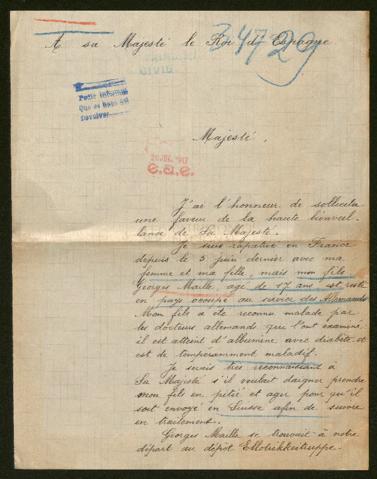 A sa Majesté le Roi d'Espagne
34729
CIVIL
Pedir informes
Que se haga así
Devolver
Majesté,
e.a.e.
J'ai l'honneur de solliciter
une faveur de la haute bienveil-
lance de Sa Majesté.
Je suis rapatrié en France
depuis le 5 juin dernier avec ma
femme et ma fille, mais mon fils
Georges Maille, agé de 17 ans est resté
en pays occupé au service des Allemands
Mon fils a été reconnu malade par
les docteurs allemands qui l'ont examiné,
il est atteint d'albumine avec diabète et
est de temperamment maladif.
Je serais très reconnaissant à
Sa Majesté s'il voulait daigner prendre
mon fils en pitié et agir pour qu'il
soit envoyé en Suisse afin de suivre
un traitement.
Georges Maille se trouvait à notre
départ au dépôt